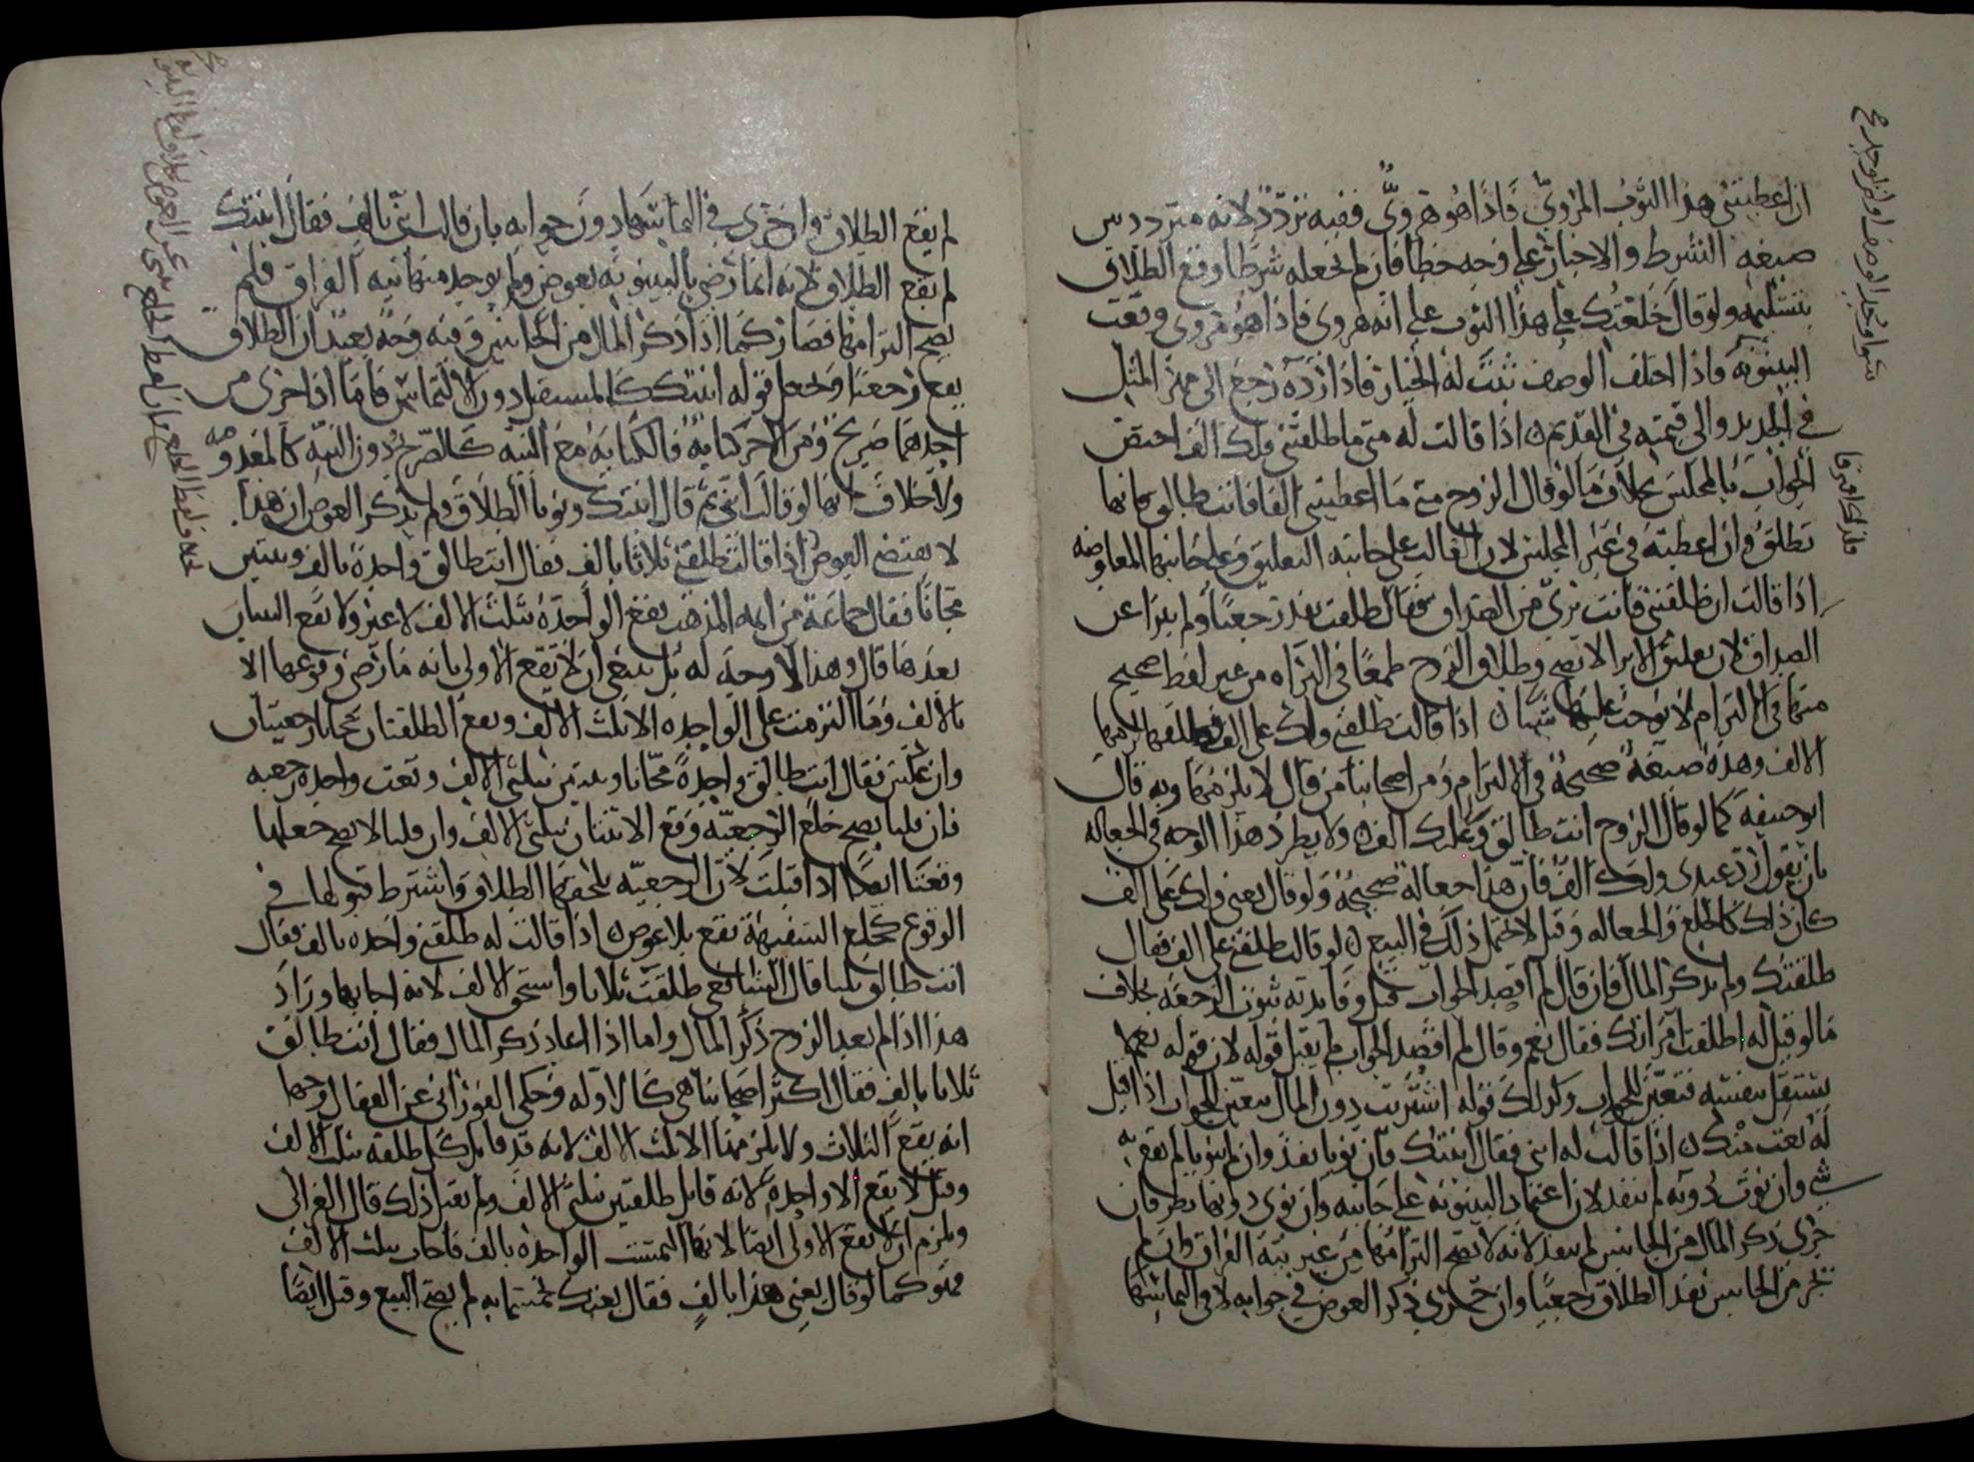 ان اعطيتني هذا الثوب المروي فاذا هو هروي ففيه تردد لانه متردد بين
صيغه الشرط والاخبار على وجه خطأ فان لم نجعله شرطا وقع الطلاق
بتسليمه ولو قال خلعتك على هذا الثوب على انه هروي فاذا هو مروي وقعت
البينونه فاذا اخلف الوصف ثبت له الخيار فاذا رده رجع الى مهر المثل
في الجديد والى قيمته في القديم اذا قالت له متى ما طلقتني فلك الف اختص
الجواب بالمجلس بخلاف ما لو قال الزوج متى ما اعطيتني الفا فانت طالق فانها
تطلق وان اعطته في غير المجلس لان الغالب على جانبه التعليق وعلى جانبها المعاوضه
اذا قالت ان طلقتني فانت بري من الصداق فقال طلقت نفذ رجعيا ولم يبرا عن
الصداق لان تعليق الابرا لا يصح وطلاق الزوج طمعا في البراه من غير لفظ صحيح
منها في الالتزام لا يوجب عليها شيا اذا قالت طلقني ولك على الف فطلقها لزمها
الالف وهذه صيغة صحيحة في الالتزام ومن اصحابنا من قال لا يلزمها وبه قال
ابو حنيفه كما لو قال الزوج انت طالق وعليك الف ولا يطرد هذا الوجه في الجعاله
بان يقول رد عبدي ولك الف فان هذا جعالة صحيحة ولو قال بعني ولك على الف
كان ذلك كالخلع والجعاله وقيل لا يحتمل ذلك في البيع لو قالت طلقني على الف فقال
طلقتك ولم يذكر المال فان قال لم اقصد الجواب قبل وفايدته ثبوت الرجعه بخلاف
ما لو قيل له اطلقت امراتك فقال نعم وقال لم اقصد الجواب لم يقبل قوله لان قوله نعم لا
يستقل بنفسه فتعين للجواب وكذلك قوله اشتريت دون المال يتعين للجواب اذا قيل
له بعت منك اذا قالت له ابني فقال ابنتك فان نويا نفذ وان لم ينويا لم يقع به
شي وان نوت دونه لم ينفذ لان اعتماد البينونه على جانبه وان نوى دونها نظر فان
جرى ذكر المال من الجانبين لم ينفذ لانه لا يصح التزامها من غير نية الفراق وان لم
يجر من الجانبين نفذ الطلاق رجعيا وان جرى ذكر العوض في جوابه لا في التماسها
لم يقع الطلاق وان جرى في التماسها دون جوابه بان قالت ابني بالف فقال ابنتك
لم يقع الطلاق لانه انما رضي بالبينونه بعوض ولم يوجد منها نيه الفراق فلم
يصح التزامها فصار كما اذا ذكر المال من الجانبين وفيه وجه بعيد ان الطلاق
يقع رجعيا ونجعل قوله ابنتك كالمستقل دون الالتماس فاما اذا جرى من
احدهما صريح ومن الاخر كنايه فالكنايه مع النيه كالصريح ودون النيه كالمعدومه
ولا خلاف انها لو قالت ابني ثم قال ابنتك ونويا الطلاق ولم يذكر العوض ان هذا
لا يقتضي العوض اذا قالت طلقني ثلاثا بالف فقال انت طالق واحدة بالف وثنتين
مجانا فقال جماعة من ايمه المذهب يقع الواحدة بثلث الالف لا غير ولا تقع الثنتان
بعدها قال وهذا لا وجه له بل ينبغي ان لا يقع الاولى بانه ما رضي وقوعها الا
بالالف وما التزمت على الواحده الا ثلث الالف ويقع الطلقتان مجانا رجعيتان
وان عكس فقال انت طالق واحدة مجانا وثنتين بثلثي الالف وقعت واحده رجعيه
فان قلنا يصح خلع الرجعيه وقع الاثنتان بثلثي الالف وان قلنا لا يصح جعلها
وقعتا ايضا اذا قبلت لان الرجعيه يلحقها الطلاق واشترط قبولها في
الوقوع كخلع السفيهة تقع بلا عوض اذا قالت له طلقني واحده بالف فقال
انت طالق ثلثا قال الشافعي طلقت ثلاثا واستحق الالف لانه اجابها وزاد
هذا اذا لم يعد الزوج ذكر المال واما اذا اعاد ذكر المال فقال انت طالق
ثلاثا بالف فقال اكثر اصحابنا هي كالاوله وحكى الفوراني عن القفال وجها
انه يقع الثلاث ولا يلزمها الا ثلث الالف لانه قد قابل كل طلقه بثلث الالف
وقيل لا يقع الا واحدة لانه قابل طلقتين بثلثي الالف ولم يقبل ذلك قال الغزالي
ويلزم ان لا يقع الاولى ايضا لانها التمست الواحده بالف فاجاب بثلث الالف
فهو كما لو قال بعني هذا بالف فقال بعتك بخمسمايه لم يصح البيع وقيل ايضا